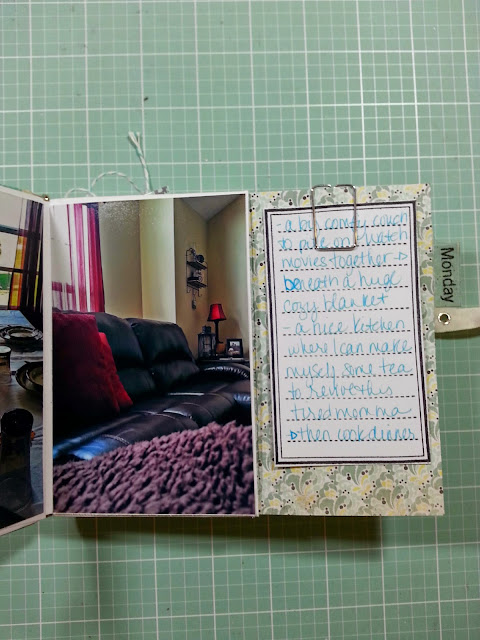 - a big comfy couch
to pile on & watch
movies together
beneath a huge
cozy blanket
- a nice kitchen
where I can make
myself some tea
to revive this
tired momma
& then cook dinner
Monday